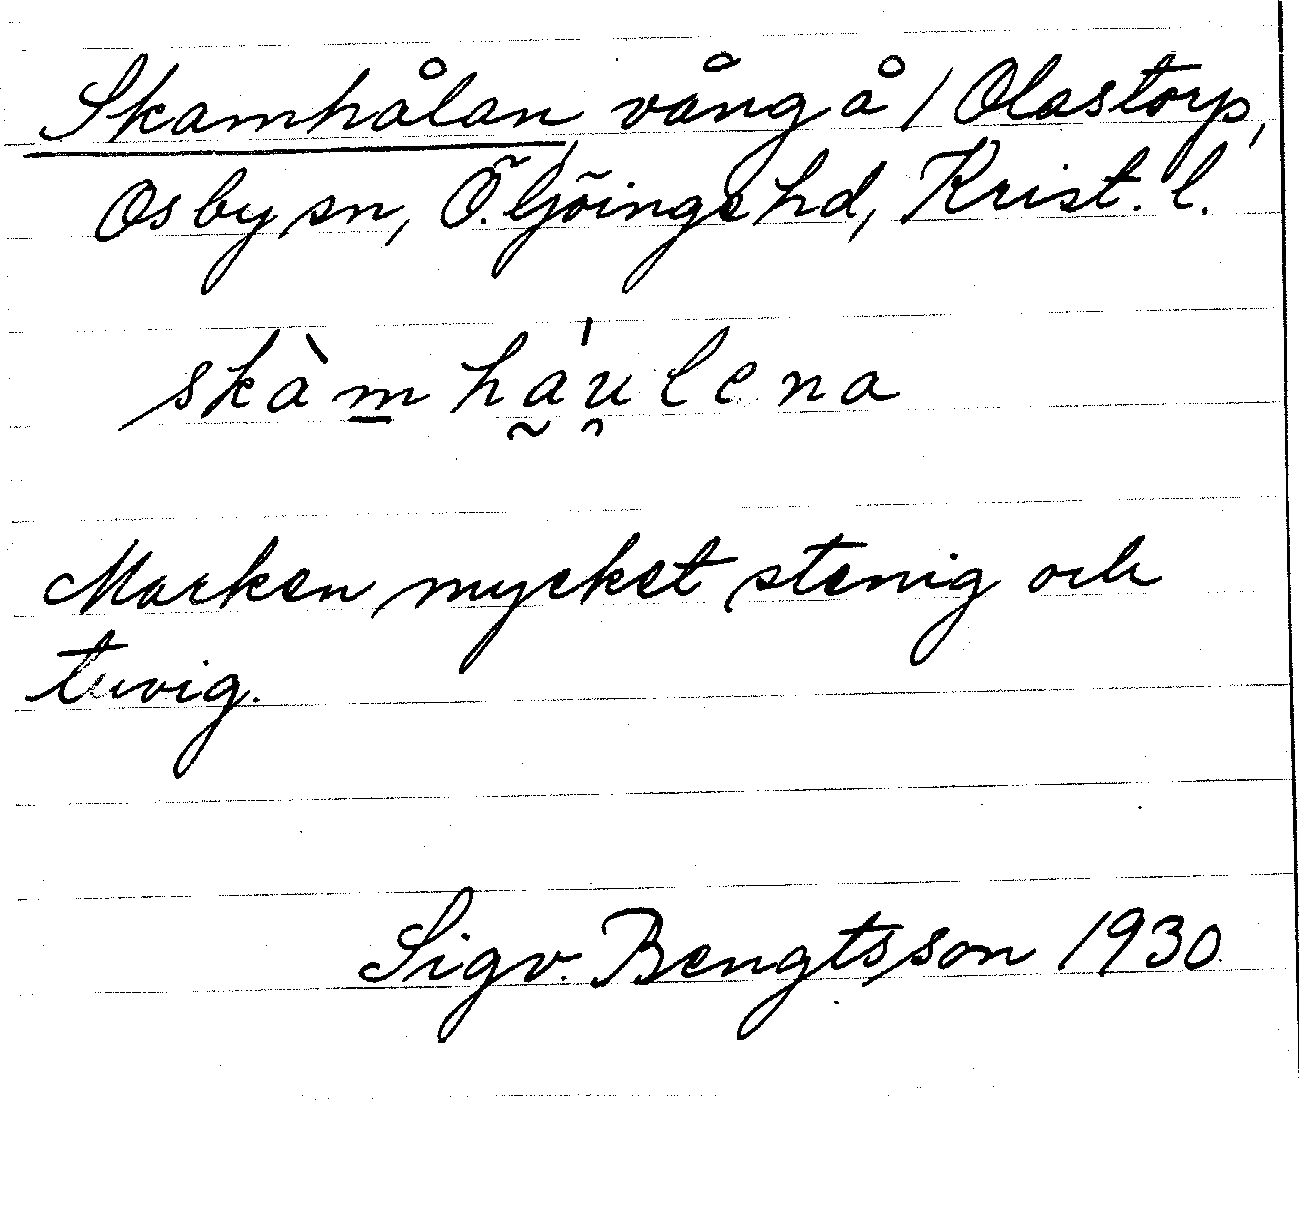 Skamhålan vång å 1 Olastorp,
Osby sn, Ö. Göinge hd, Krist. l.
skàm̲ ha̰ᷓú̯lena
Marken mycket stenig och
tuvig.
Sigv. Bengtsson 1930